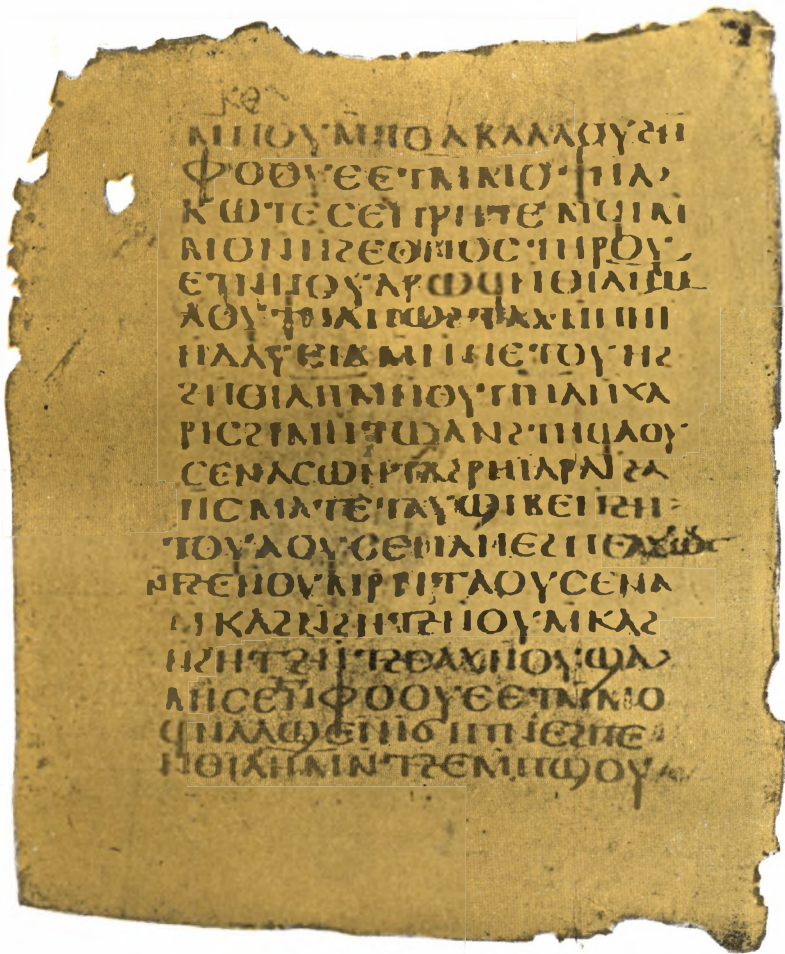 ⲙⲡⲟⲩⲙⲧⲟⲁⲃⲁⲗⲁⲟⲩϩⲛ
ⲫⲟⲟⲩⲉⲉⲧⲙⲙⲟϯⲛⲁ
ⲕⲱⲧⲉ
ⲙⲟⲛⲛϩⲉⲑⲛⲟⲥⲧⲏⲣⲟⲩ
ⲉⲧⲛⲛⲟⲩⲁⲣⲱϥⲛⲑⲓⲗⲏⲙ
ⲁⲟⲩϯⲛⲁⲡⲱϩⲧⲁϫⲙⲡⲏⲓ
ⲛⲇⲁⲩⲉⲓⲇⲙⲛⲛⲉⲧⲟⲩⲏϩ
ϩⲛⲑⲓⲗⲏⲙⲛⲟⲩⲡⲛⲁⲛⲭⲁ
ⲣⲓⲥϩⲓⲙⲛⲧϣⲁⲛϩⲧⲏϥⲁⲟⲩ
ⲥⲉⲛⲁϭⲱϣⲧⲁϩⲣⲏⲓⲁⲣⲁⲓϩⲁ
ⲡⲥⲙⲁⲧⲉ
ⲧⲟⲩⲁⲟⲩⲥⲉⲛⲁⲛⲉϩⲡⲉⲁϫⲱϥ
ⲛⲧϩⲉⲛⲟⲩⲙⲣⲣⲓⲧⲁⲟⲩⲥⲉⲛⲁ
ⲙⲕⲁϩⲛϩⲏⲧϩⲛⲟⲩⲙⲕⲁϩ
ⲛϩⲏⲧϩⲛⲧϩⲉⲁϫⲛⲟⲩϣⲁ
ⲙⲓⲥⲉϩⲛⲫⲟⲟⲩⲉⲉⲧⲙⲙⲟ
ϥⲛⲁⲁϣⲉⲓⲛϭⲓⲡⲛⲉϩⲡⲉ
ⲛⲑⲓⲗⲏⲙⲛⲧϩⲉⲙⲡϣⲟⲩ